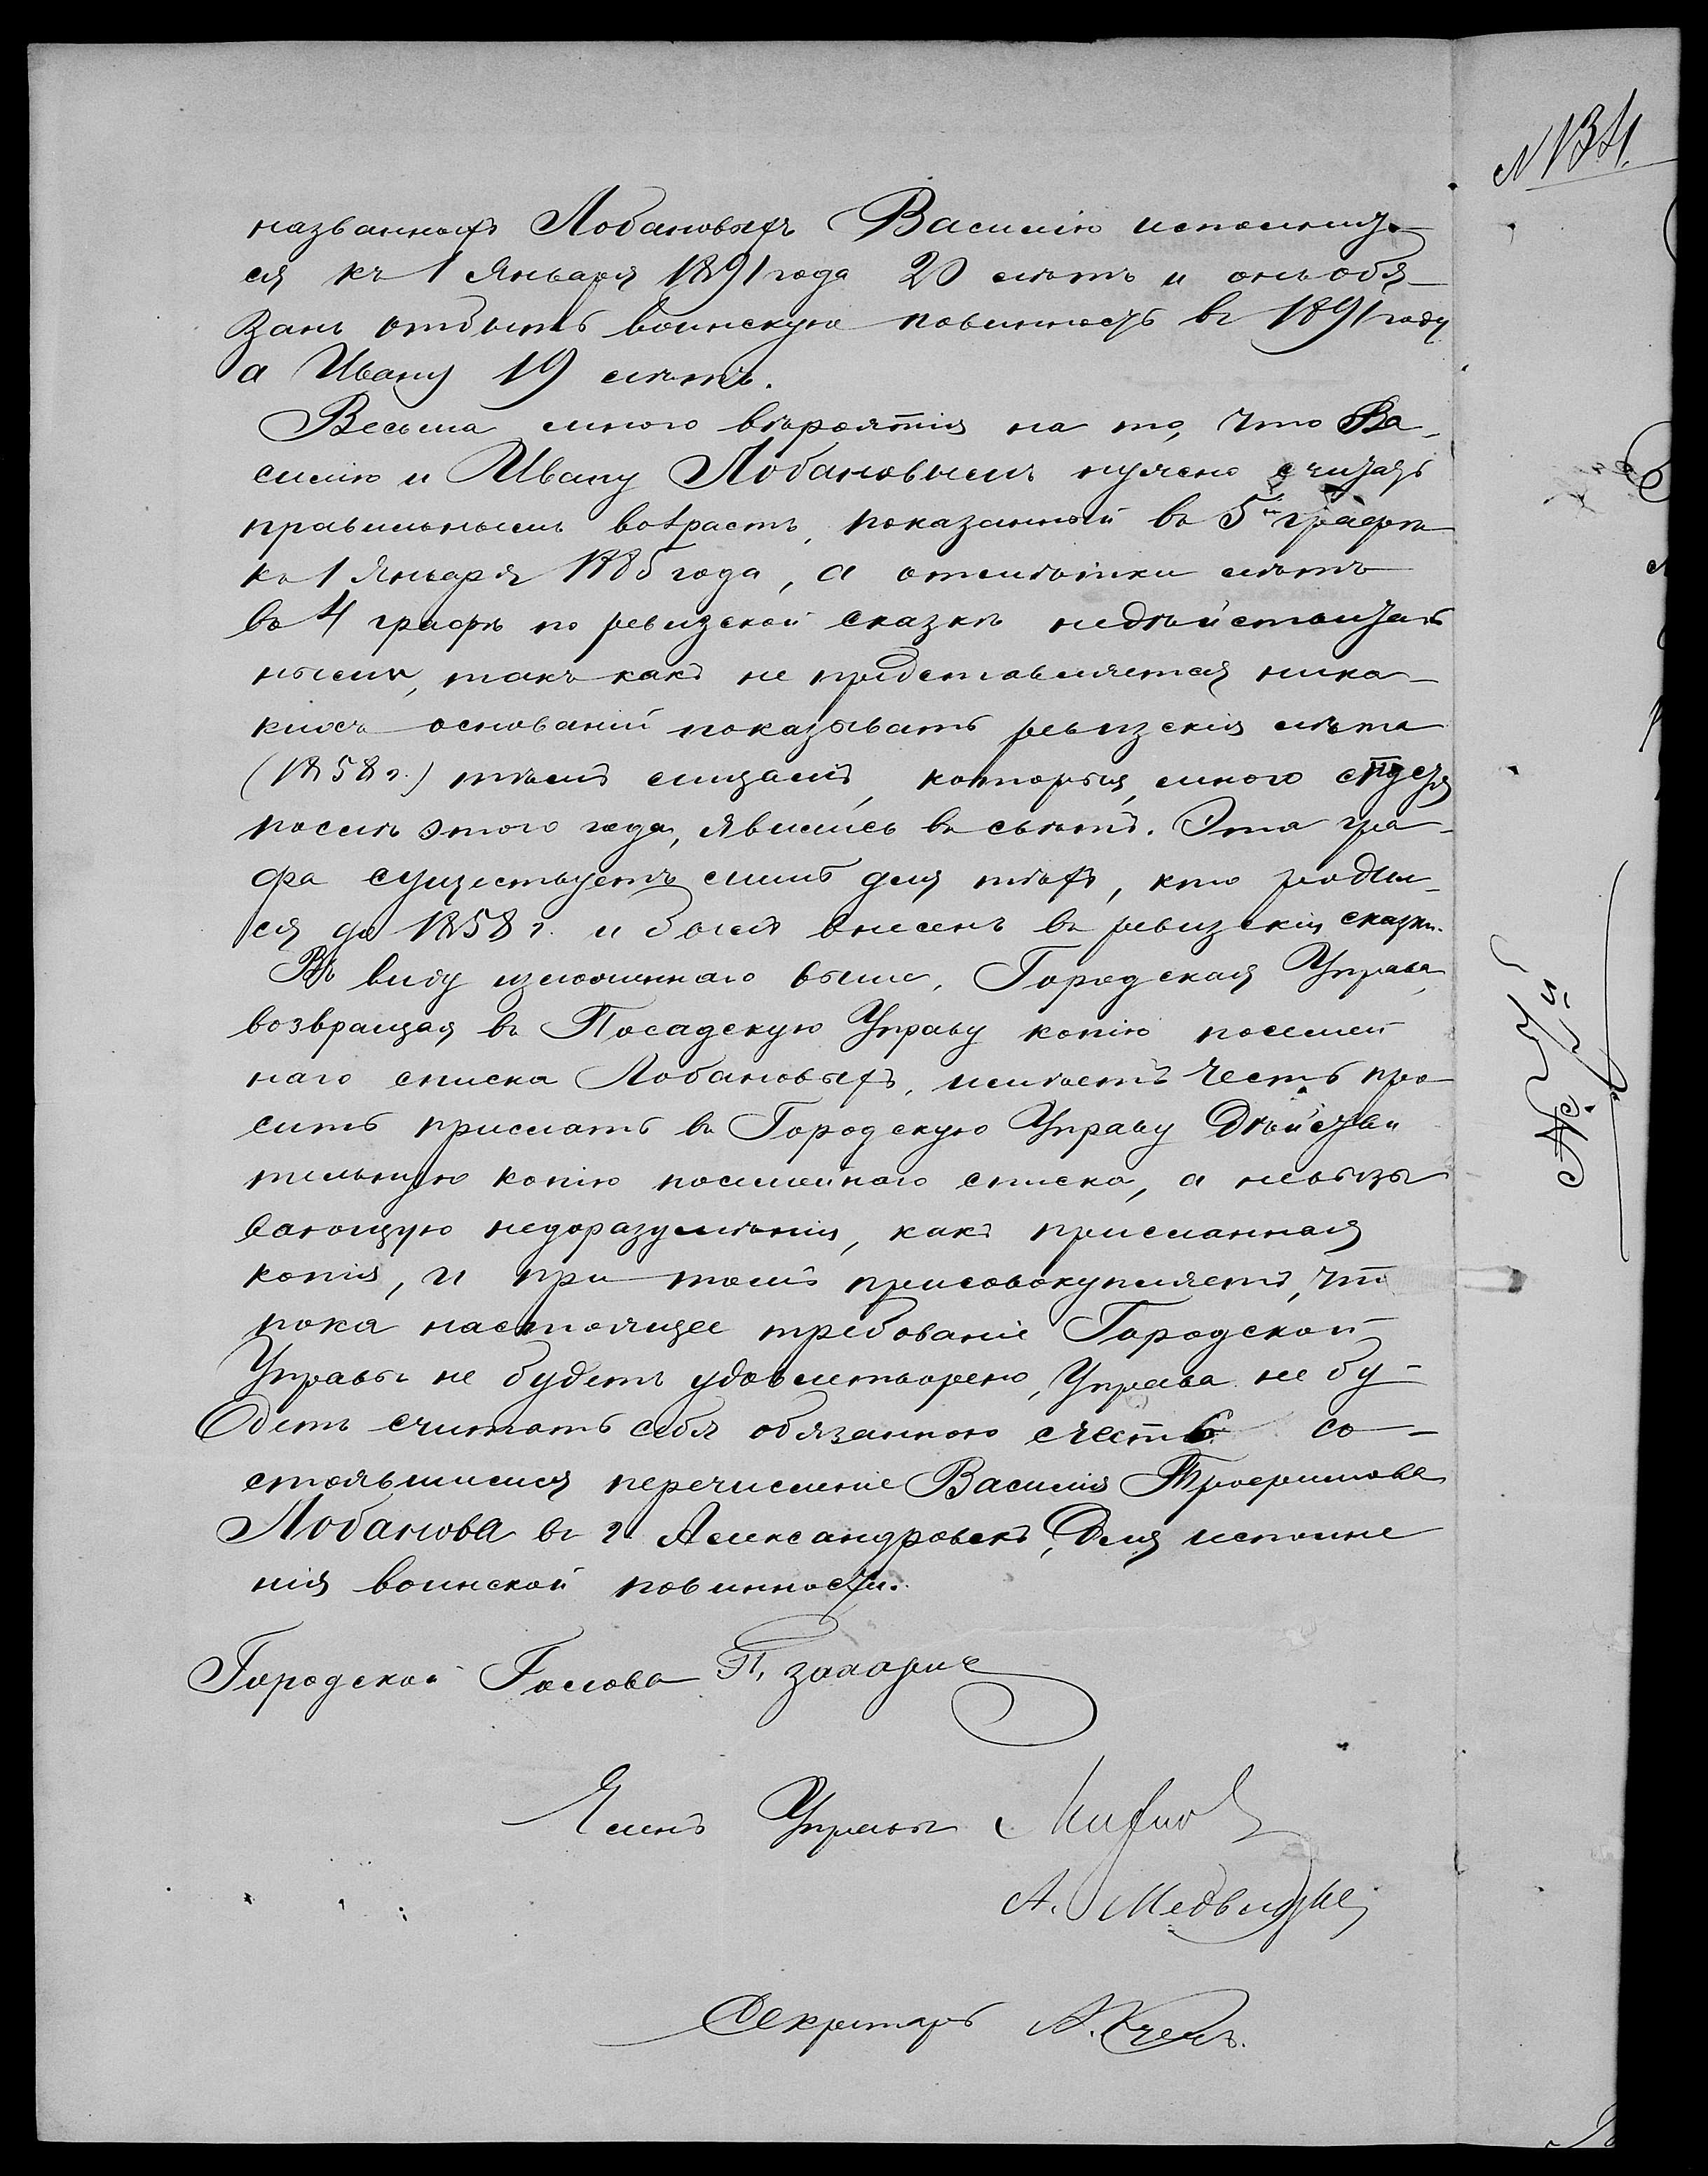 названныхъ Лобановыхъ Василію исполнит-
ся къ 1 Января 1891 года 20 лѣтъ и онъ обя-
занъ отбыть воинскую повинность въ 1891 году
а Ивану 19 лѣтъ.
Весьма много вѣроятія на то, что Ва-
силію и Ивану Лобановымъ нужно считать
правильнымъ вотрастъ, показанный въ 5й графѣ
къ 1 Января 1885 года, а отмѣтки лѣтъ
въ 4 графѣ по ревизской сказкѣ недѣйствитель
ными, такъ какъ не представляется ника-
кихъ основаній показывать ревизскія лѣта
(1858 г.) тѣмъ лицамъ, которыя, много спустя
послѣ этого года, явились въ свѣтъ. Эта гра-
фа существуетъ лишь для тѣхъ, кто родил-
ся до 1858 г. и былъ внесенъ въ ревизскія сказки.
Въ виду изложеннаго выше, Городская Управа,
возвращая въ Посадскую Управу копію посемей
наго списка Лобановыхъ, имѣетъ честь про-
сить прислать въ Городскую Управу дѣйстви
тельную копію посемейнаго списка, а невызы
вающую недоразумѣнія, какъ присланная
копія, и при томъ присовокупляетъ, что
пока настоящее требованіе Городской
Управы не будетъ удовлетворено, Управа не бу-
детъ считать себя обязанною счесть со-
стоявшимся перечисленіе Василія Трофимова
Лобанова въ г. Александровскъ, для исполне
нія воинской повинности.
Городской Голова П. Захарие
Членъ Управы
А. Медвед
Секретарь
N 134.